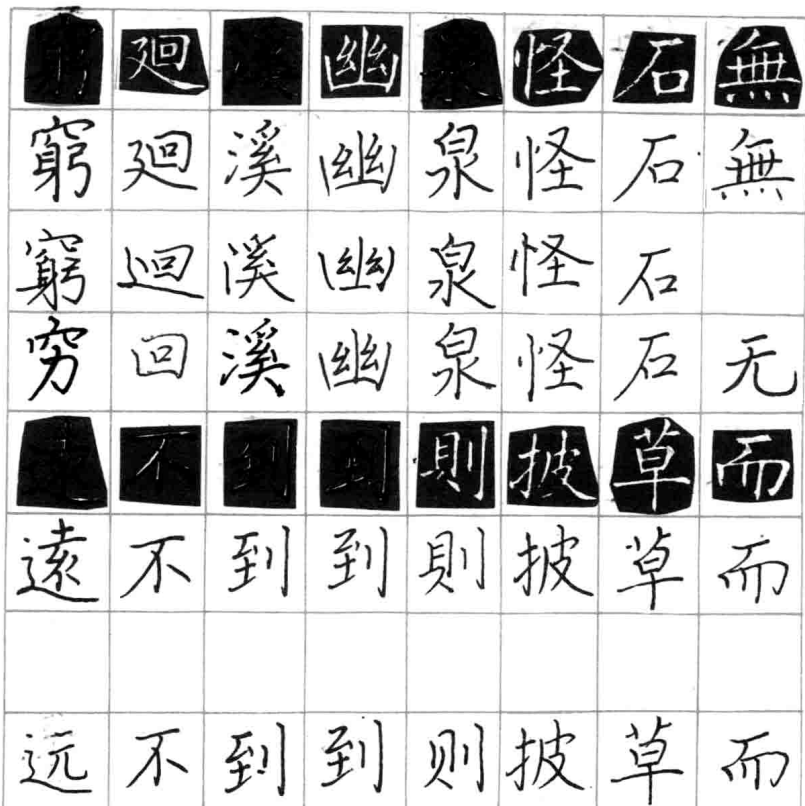 廻 幽 怪 石 無
窮 廻 溪 幽 泉 怪 石 無
窮 迴 溪 幽 泉 怪 石
穷 回 溪 幽 泉 怪 石 无
不 到 到 則 披 草 而
遠 不 到 到 則 披 草 而
远 不 到 到 则 披 草 而